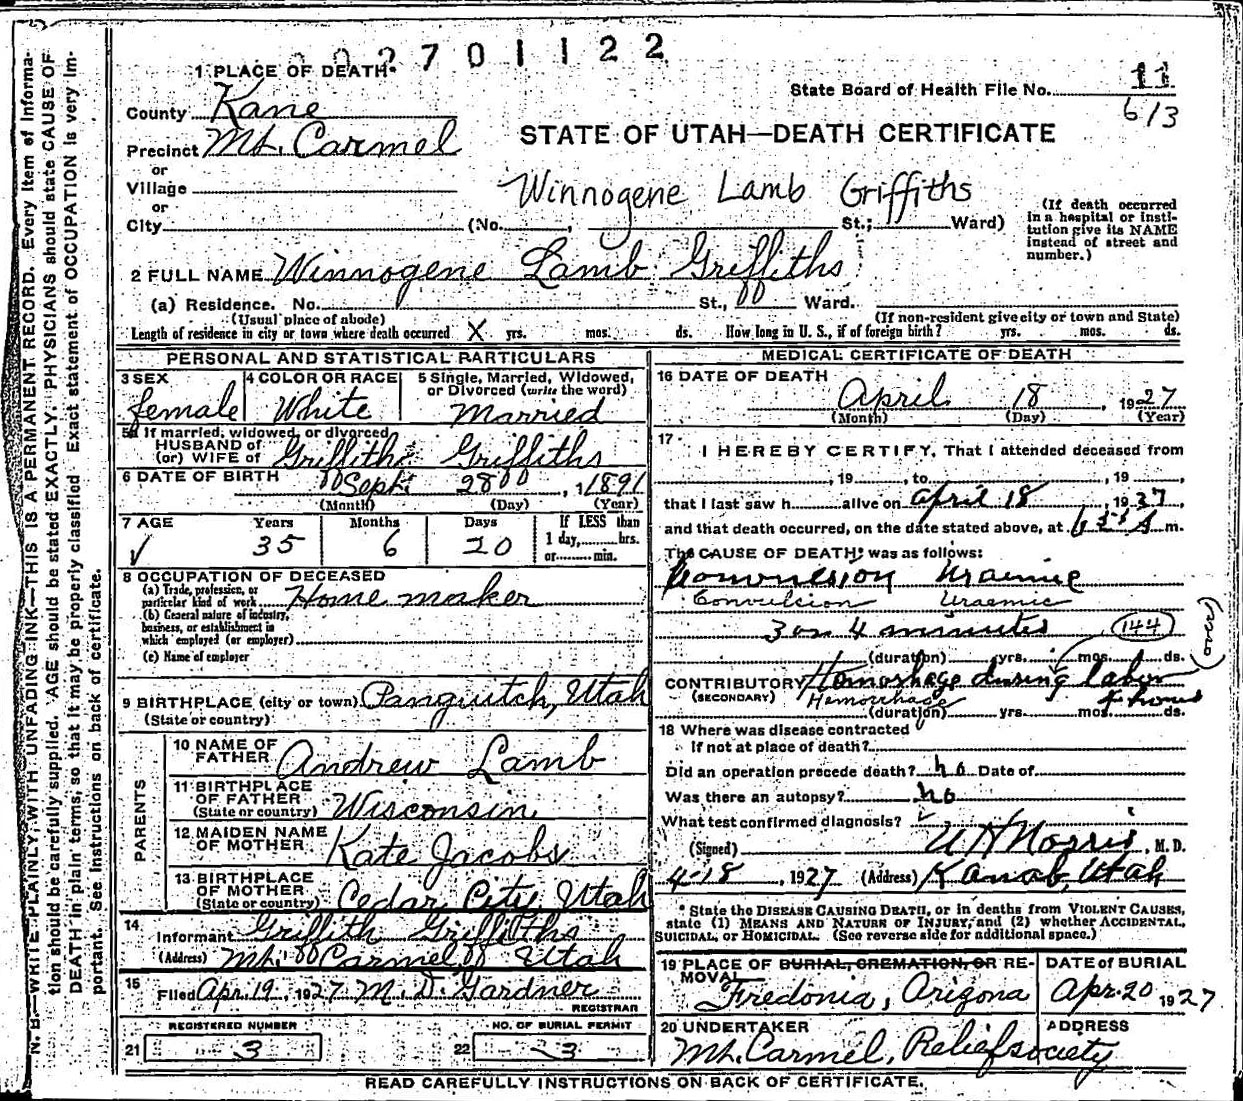 002701122
1 PLACE OF DEATH
State Board of Health File No. 11
613
County Kane
STATE OF UTAH—DEATH CERTIFICATE
Precinct Mt. Carmel
or
Village
or
Winnogene Lamb Griffiths
City (No. , St.; Ward)
(If death occurred in a hospital or institution give its NAME instead of street and number.)
2 FULL NAME Winnogene Lamb Griffiths
(a) Residence. No. St., Ward.
(Usual place of abode) (If non-resident give city or town and State)
Length of residence in city or town where death occurred X yrs. mos. ds. How long in U. S., if of foreign birth? yrs. mos. ds.
PERSONAL AND STATISTICAL PARTICULARS
3 SEX 4 COLOR OR RACE 5 Single, Married, Widowed, or Divorced (write the word)
female White Married
5a If married, widowed, or divorced
HUSBAND of
(or) WIFE of Griffith Griffiths
6 DATE OF BIRTH Sept. 28, 1891
(Month) (Day) (Year)
7 AGE Years Months Days If LESS than
1 day, hrs.
or min.
35 6 20
8 OCCUPATION OF DECEASED
(a) Trade, profession, or
particular kind of work Home maker
(b) General nature of industry,
business, or establishment in
which employed (or employer)
(c) Name of employer
9 BIRTHPLACE (city or town) Panguitch, Utah
(State or country)
PARENTS
10 NAME OF
FATHER Andrew Lamb
11 BIRTHPLACE
OF FATHER Wisconsin.
(State or country)
12 MAIDEN NAME
OF MOTHER Kate Jacobs
13 BIRTHPLACE
OF MOTHER Cedar City, Utah
(State or country)
14
Informant Griffith Griffiths
(Address) Mt. Carmel, Utah
15 Filed Apr. 19, 1927 M. D. Gardner
REGISTRAR
REGISTERED NUMBER NO. OF BURIAL PERMIT
21 3 22 3
MEDICAL CERTIFICATE OF DEATH
16 DATE OF DEATH
April 18, 1927
(Month) (Day) (Year)
17
I HEREBY CERTIFY, That I attended deceased from
, 19 , to , 19 ,
that I last saw h alive on April 18, 1927
and that death occurred, on the date stated above, at m.
The CAUSE OF DEATH* was as follows:
Convulsion Uraemic
Convulsion Uraemic
3 or 4 minutes (144)
(over)
(duration) yrs. mos. ds.
CONTRIBUTORY Hemorhage during labor
(SECONDARY) Hemorrhage
hours
(duration) yrs. mos. ds.
18 Where was disease contracted
if not at place of death?
Did an operation precede death? no Date of
Was there an autopsy? no
What test confirmed diagnosis?
(Signed) Norris, M. D.
4-18, 1927 (Address) Kanab, Utah
* State the DISEASE CAUSING DEATH, or in deaths from VIOLENT CAUSES,
state (1) MEANS AND NATURE OF INJURY, and (2) whether ACCIDENTAL,
SUICIDAL, or HOMICIDAL. (See reverse side for additional space.)
19 PLACE OF BURIAL, CREMATION, OR RE- DATE OF BURIAL
MOVAL
Fredonia, Arizona Apr. 20 1927.
20 UNDERTAKER ADDRESS
Mt. Carmel, Relief society
READ CAREFULLY INSTRUCTIONS ON BACK OF CERTIFICATE.
N. B.—WRITE PLAINLY, WITH UNFADING INK—THIS IS A PERMANENT RECORD. Every item of informa-
tion should be carefully supplied. AGE should be stated EXACTLY. PHYSICIANS should state CAUSE OF
DEATH in plain terms, so that it may be properly classified. Exact statement of OCCUPATION is very im-
portant. See instructions on back of certificate.